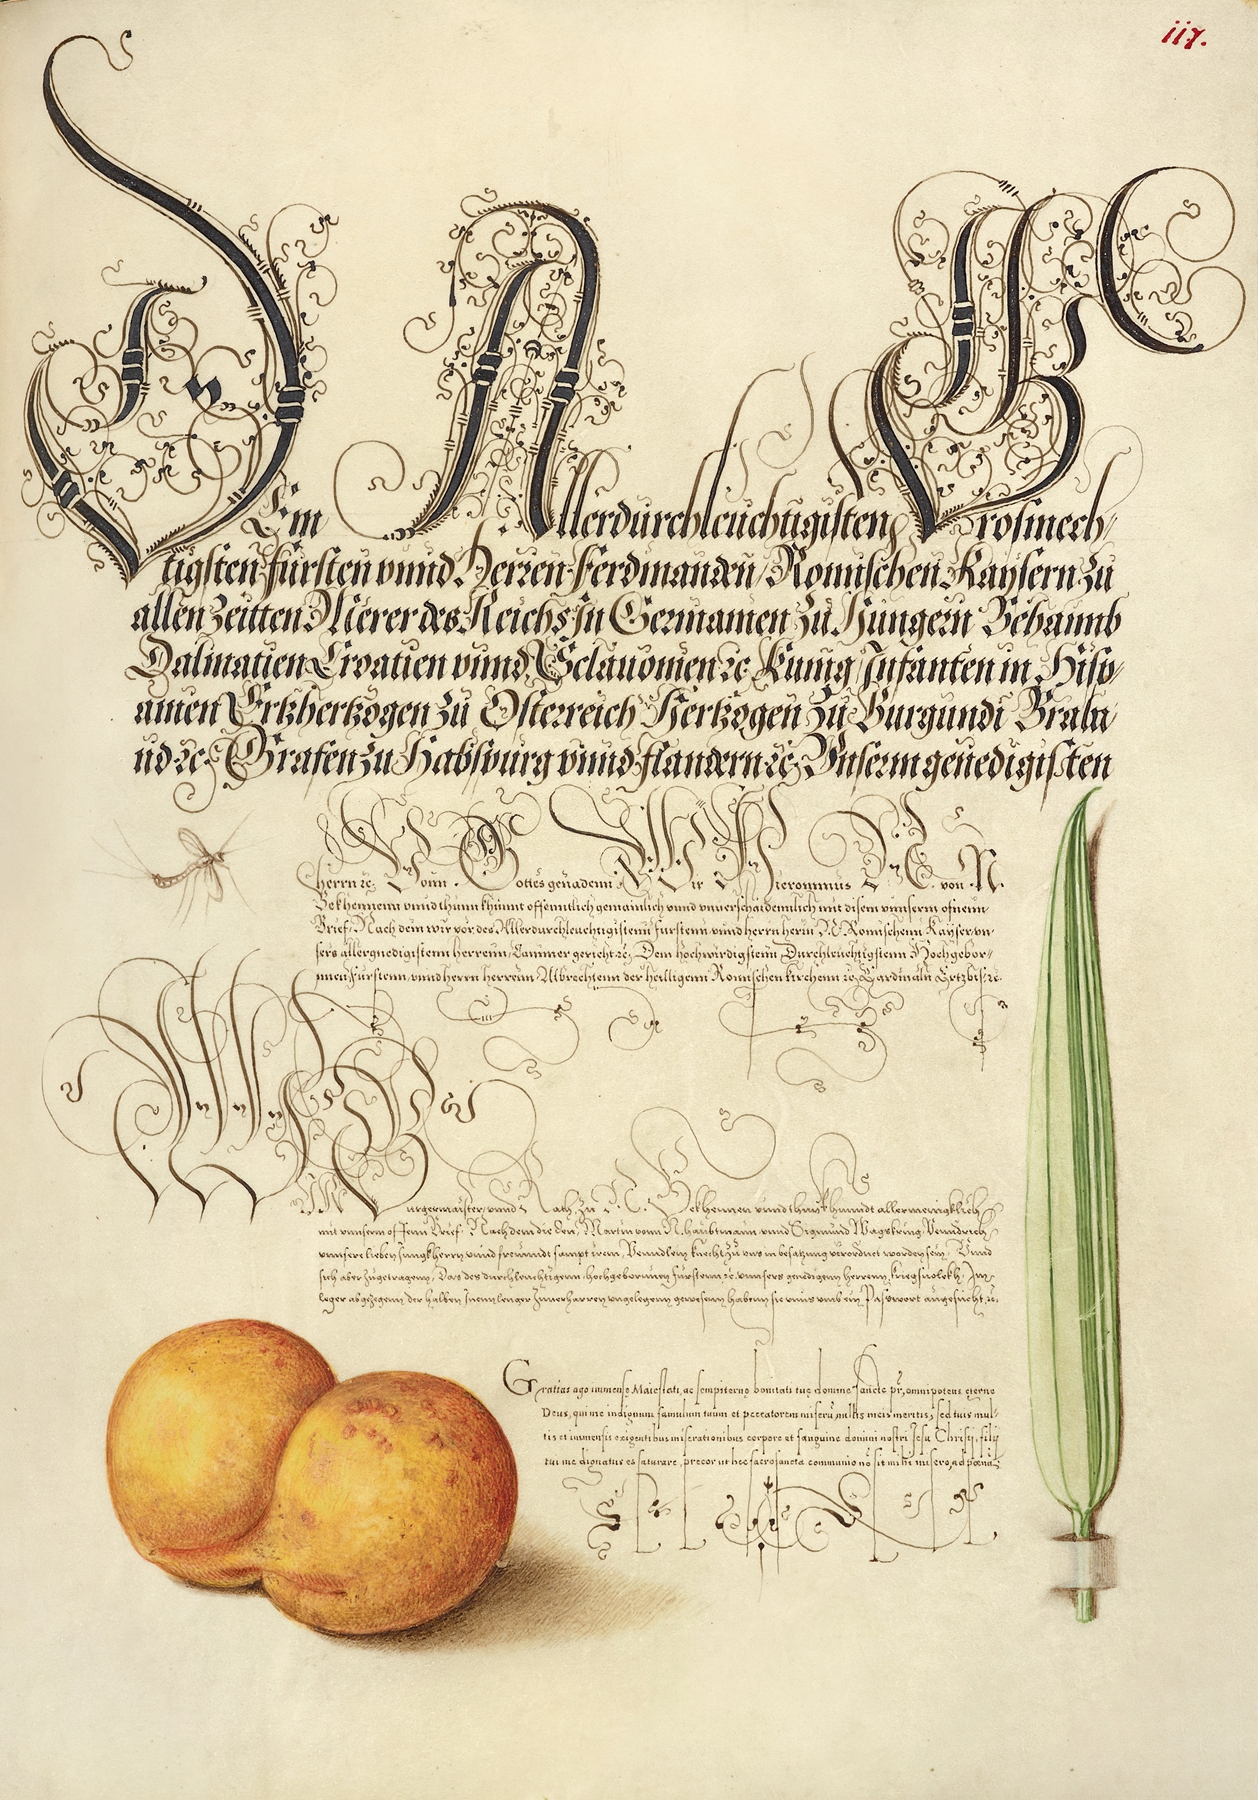 117.
Dem Allerdurchleuchtigisten Grosmech/
tigisten fürsten vnnd Herren Ferdinanden Romischen Kaysern zu
allen Zeitten Merer des Reichs In Germanien zu Hungern Behaimb
Dalmatien Croatien vnnd Sclauonien ꝛc Kunig Infanten in Hisp/
anien Ertzhertzogen zu Osterreich Hertzogen zu Burgundi Braba/
nd ꝛc Grafen zu Habspurg vnnd flandern ꝛc Vnserm genedigisten
herrn ꝛc Vonn Gottes genadenn Wir Hieronimus D. E. von N.
Bekhennenn vnnd thunn khunnt offenntlich gemainlich vnnd vnuerschaidennlich mit disem vnnserm ofnenn
Brief. Nach dem wir vor des Allerdurchleuchtigistenn furstenn vnnd herrn herrn N. Romischenn Kayser vn-
sers allergnedigistenn herrenn Cammer gericht ꝛc Dem hochwirdigistenn Durchleuchtigistenn Hochgebor-
nnen Fürstenn vnnd herrn herrenn Albrechtenn der heilligenn Romischen kirchenn ꝛc Cardinaln Ertzbis. ꝛc
WIR Burgermaister vnnd Rath zu N. Bekhennen vnnd thun khundt allermenigklich
mit vnnserm offenn Brief. Nachdem die Edlen Martin vonn N. haubtmann vnnd Sigmund Wagskring Venndrich
vnnsere lieben Jungkherrn vnnd freunndt sampt iren Venndlein knecht zu vns in besatzung verordnet worden sein. Vnnd
sich aber zugetragenn, Das des durchleuchtigenn hochgebornnen fürstenn ꝛc vnnsers genedigenn herrenn kriegsuolckh. Im
leger abgezogenn der halben Inen lenger Zuuerharren vngelegenn gewesenn habenn sie vnns vmb ein Paswort angesucht ꝛc
Gratias ago immensę Maiestati, ac sempiternę bonitati tuę domine sancte pr̄, omnipotens ęterne
Deus, qui me indignum famulum tuum et peccatorem miserū, nullis meis meritis, sed tuis mul-
tis et immensis exigentibus miserationibus corpore et sanguine domini nostri Jesu Christi, filij
tui me dignatus es saturare, precor ut hęc sacrosancta communio nō sit mihi misero, ad pœnā